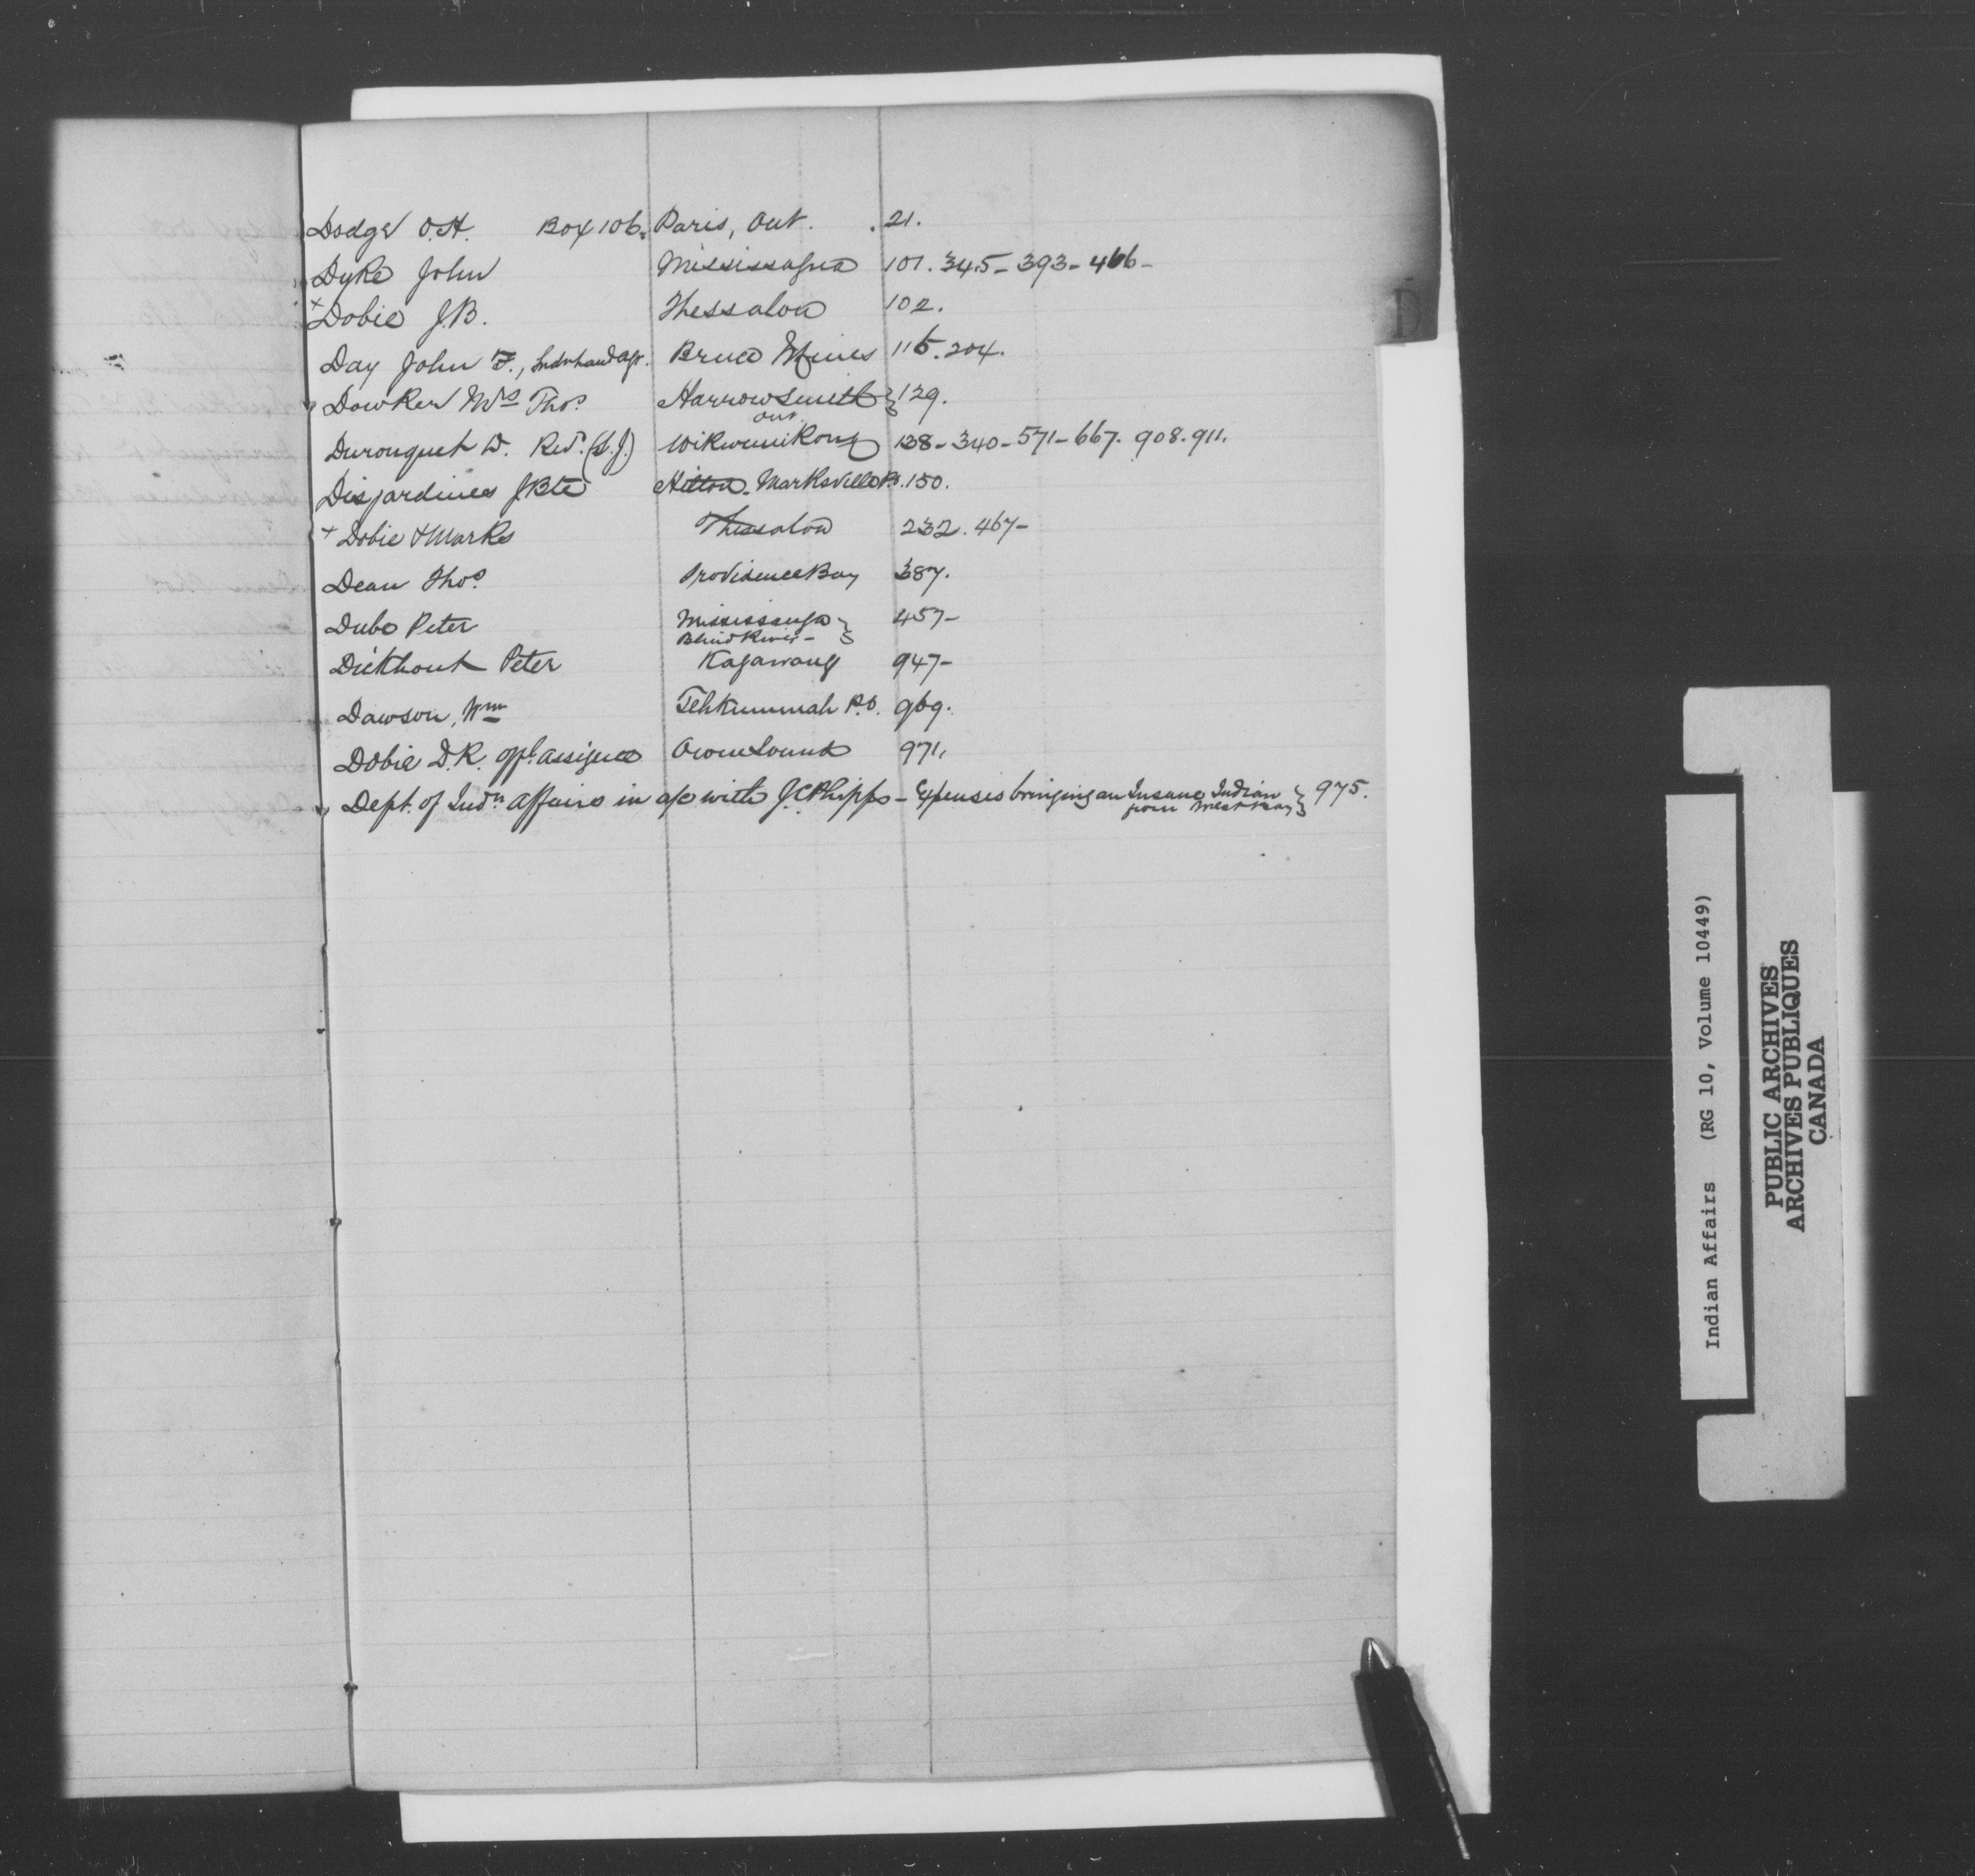 Dodge O.H. Box 106. Paris, Ont. . 21.
Dyke John Mississagua 101. 345- 393- 466-
D
+ Dobie J.B. Thessalon 102.
Day John F., Indn Land Agt. Bruce Mines 115. 204.
Dowker Mrs Thos Harrowsmith } 129.
Ont.
Duronquet D. Revd. (S.J.) Wikwemikong 138- 340- 571- 667. 908. 911.
Disjardines J. Bte Hilton- Marksville P.O. 150.
+ Dobie & Marks Thessalon 232. 467-
Dean Thos Providence Bay 387.
Dube Peter Mississauga } 457-
Blind River-
Dickhout Peter Kagawong 947-
Dawson, Wm Tehkummah P.O. 969.
Dobie D.R. offl. assignee Owen Sound 971.
Dept. of Indn Affairs in a/c with J.C. Phipps - Expenses bringing an Insane Indian } 975.
from West Bay
Indian Affairs (RG 10, Volume 10449)
PUBLIC ARCHIVES
ARCHIVES PUBLIQUES
CANADA